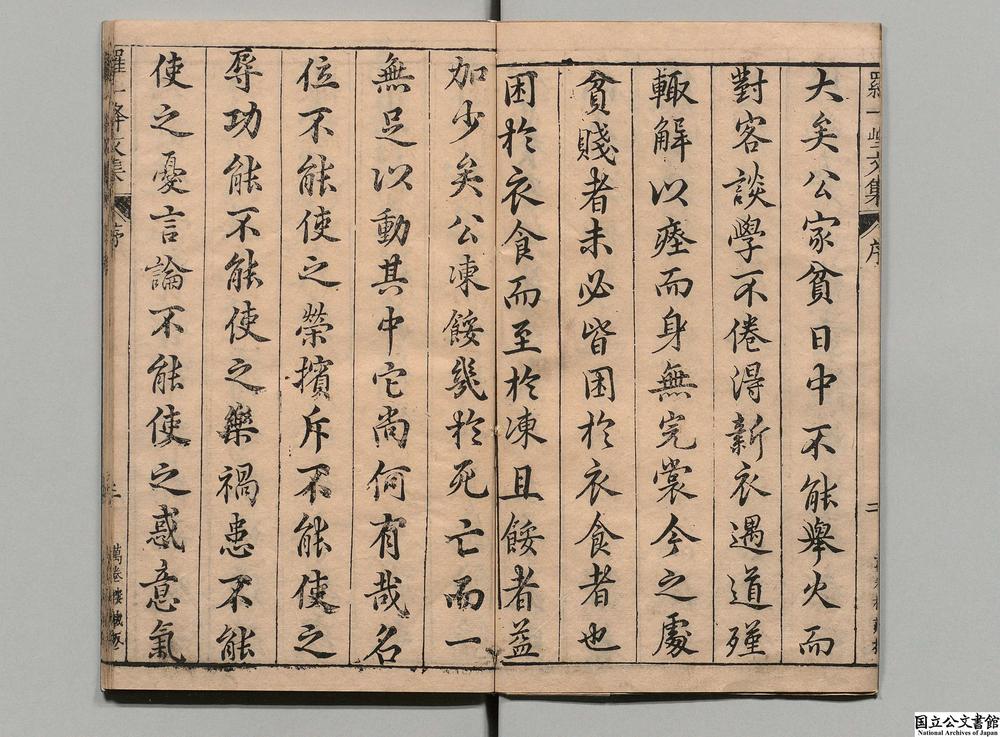 羅一峰文集 序 二
大矣公家貧日中不能舉火而
對客談學不倦得新衣遇道殣
輙解以瘞而身無完裳今之處
貧賤者未必皆困於衣食者也
困於衣食而至於凍且餒者益
加少矣公凍餒幾於死亡而一
無足以動其中它尚何有哉名
位不能使之榮擯斥不能使之
辱功能不能使之樂禍患不能
使之憂言論不能使之惑意氣
羅一峰文集 序 三 萬卷樓
国立公文書館
National Archives of Japan